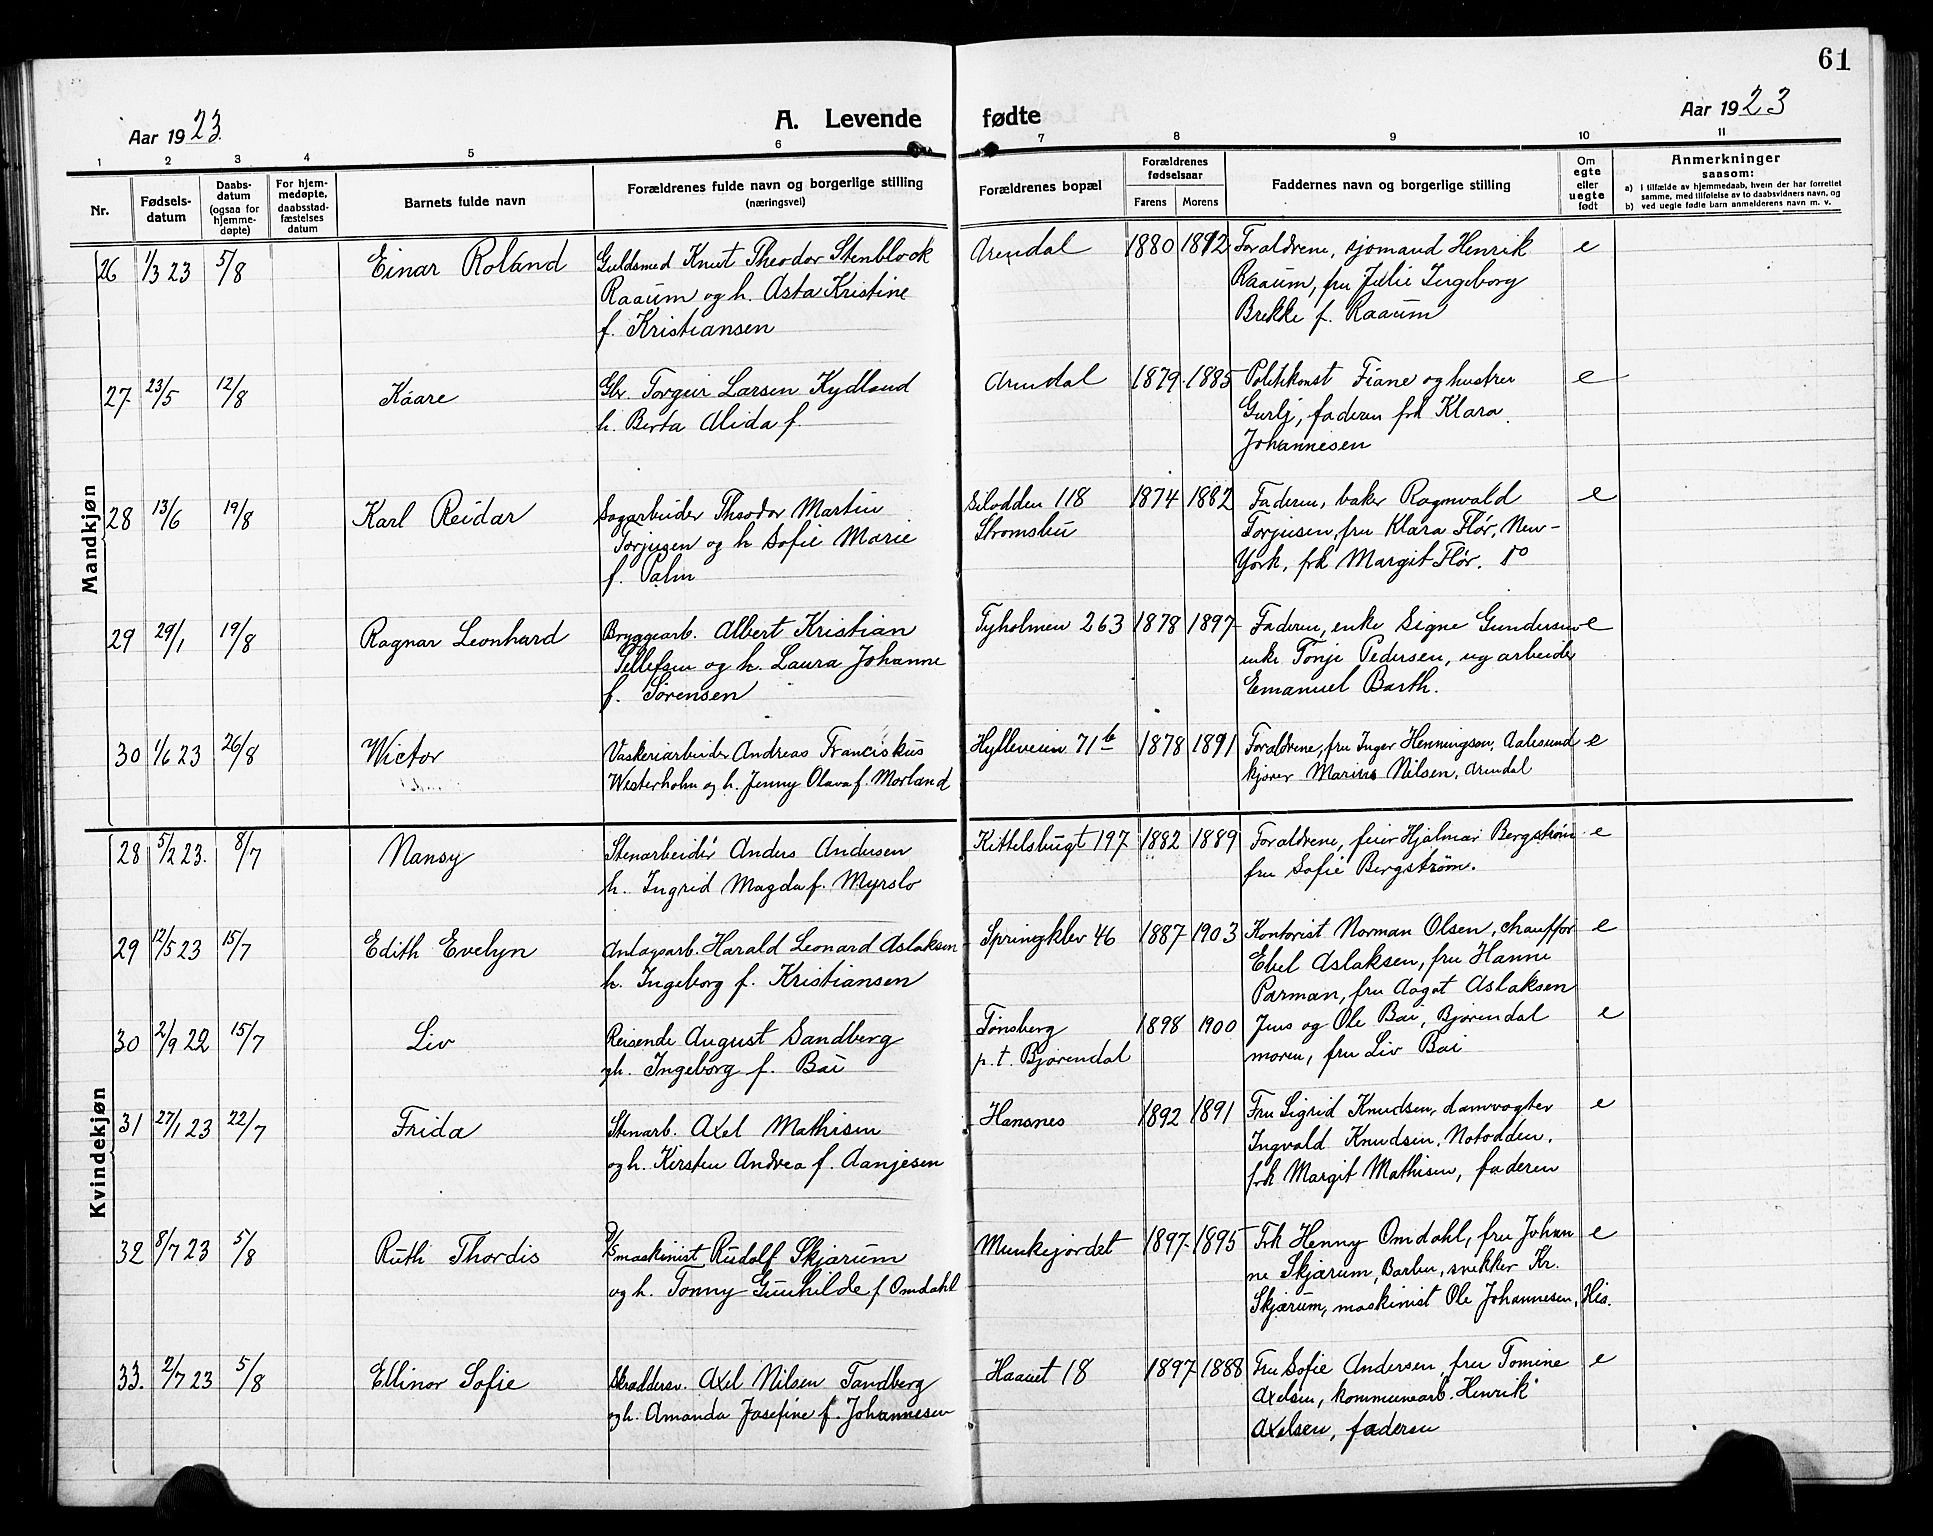 61
Aar 1923.
A. Levende fødte
Aar 1923
1 2 3 4 5 6 7 8 9 10 11
Nr.
Fødsels-
datum
Daabs-
datum
(ogsaa for
hjemme-
døpte)
For hjem-
medøpte,
daabsstad-
fæstelses
datum
Barnets fulde navn
Forældrenes fulde navn og borgerlige stilling
(næringsvei)
Forældrenes bopæl
Forældrenes
fødselsaar
Farens Morens
Faddernes navn og borgerlige stilling
Om
egte
eller
uegte
født
Anmerkninger
saasom:
a) i tilfælde av hjemmedaab, hvem der har forrettet
samme, med tilføielse av to daabsvidners navn, og
b) ved uegte fødte barn anmelderens navn m. v.
Mandkjøn
26 1/3 23 5/8 Einar Roland Guldsmed Knut Theodor Stenblock Arendal 1880 1892 Forældrene, sjømand Henrik e
Raaum og h. Asta Kristine Raaum, fru Julie Ingeborg
f. Kristiansen Brekke f. Raaum
27 23/5 12/8 Kaare Gbr. Torgeir Larsen Kydland Arendal 1879 1885 Politikonst Fiane og hustru e
h. Berta Alida f. Gurly, faderen frk Klara
Johannesen
28 13/6 19/8 Karl Reidar Sagarbeider Theodor Martin Silodden 118 1874 1882 Faderen, baker Ragnvald e
Torjusen og h Sofie Marie Strømsbu Torjusen, fru Klara Flør, New-
f. Palm York, frk Margit Flør. do
29 29/1 19/8 Ragnar Leonhard Bryggearb. Albert Kristian Tyholmen 263 1878 1897 Faderen, enke Signe Gundersen e
Tellefsen og h. Laura Johanne enke Tonje Pedersen, og arbeider
f. Sørensen Emanuel Barth.
30 1/6 23 26/8 Wictor Vaskeriarbeider Andreas Franciskus Hylleveien 71b 1878 1891 Forældrene, fru Inger Henningson, Aalesund e
Westerholm og h. Jenny Olava f. Morland kjører Marius Nilsen, Arendal
Kvindekjøn
28 5/2 23. 8/7 Nansy Stenarbeider Anders Andersen Kittelsbugt 197 1882 1889 Forældrene, feier Hjalmar Bergstrøm e
h. Ingrid Magda f. Myrslo fru Sofie Bergstrøm.
29 12/5 23 15/7 Edith Evelyn Anlægsarb. Harald Leonard Aslaksen Springklev 46 1887 1903 Kontorist Norman Olsen, chauffør e
h. Ingeborg f. Kristiansen Ebel Aslaksen, fru Hanne
Parman, fru Aagot Aslaksen
30 2/9 22 15/7 Liv Reisende August Sandberg Tønsberg 1898 1900 Jens og Ole Bai, Bjørendal e
og h. Ingeborg f. Bai p.t. Bjørendal moren, fru Liv Bai
31 27/1 23 22/7 Frida Stenarb. Axel Mathisen Hansnes 1892 1891 Fru Sigrid Knudsen, damvogter e
og h. Kirsten Andrea f. Aanjesen Ingvald Knudsen, Notodden,
frk Margit Mathisen, faderen
32 8/7 23 5/8 Ruth Thordis D/S maskinist Rudolf Skjærum Munkejordet 1897 1895 Frk Henny Omdahl, fru Johan e
og h. Tonny Gunhilde f Omdahl ne Skjærum, Barbu, snekker Kr.
Skjærum, maskinist Ole Johannesen, His.
33. 2/7 23 5/8 Ellinor Sofie Skræddersv. Axel Nilsen Tandberg Haavet 18 1897 1888 Fru Sofie Andersen, fru Tomine e
og h. Amanda Josefine f. Johannesen Axelsen, kommunearb. Henrik
Axelsen, faderen